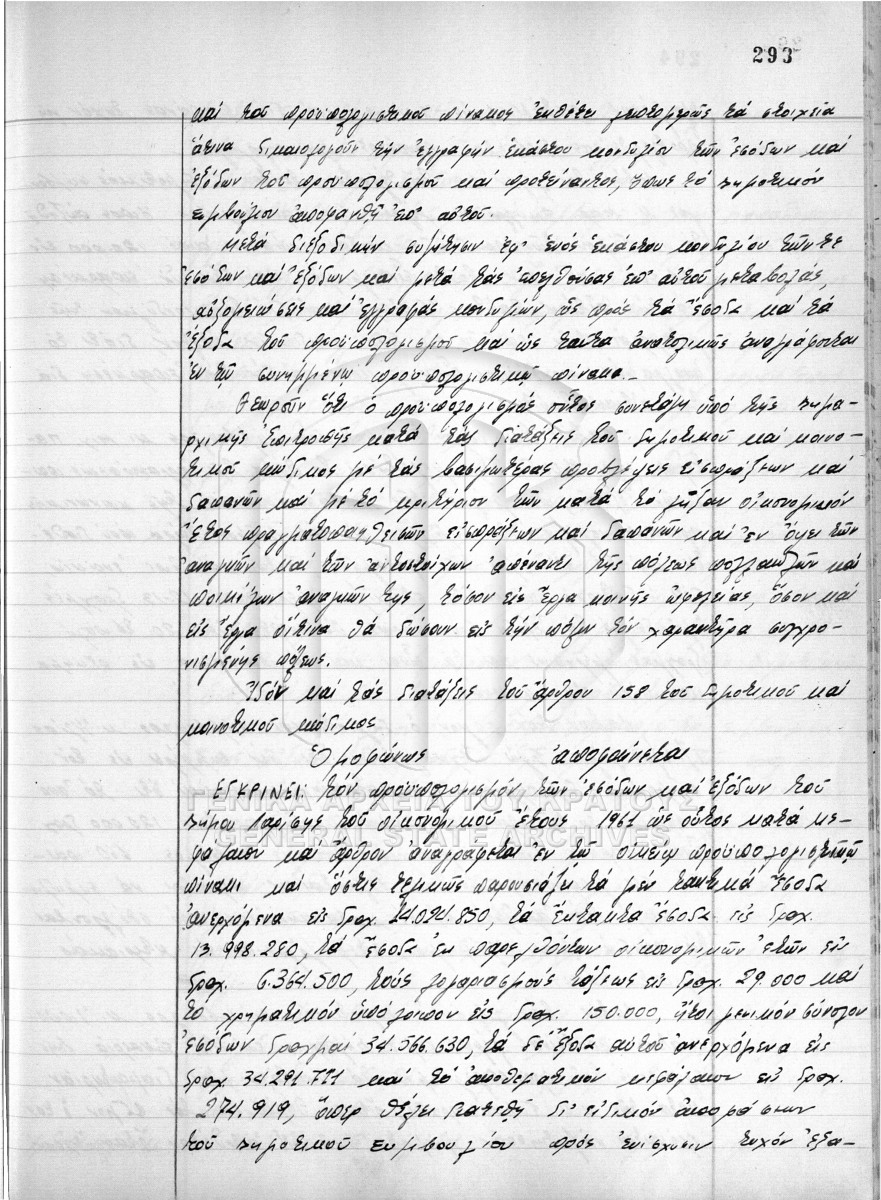 293
καί τοῦ προϋπολογιστικοῦ πίνακος ἐκθέτει λεπτομερῶς τά στοιχεῖα
ἅτινα δικαιολογοῦν τήν ἐγγραφήν ἑκάστου κονδυλίου τῶν ἐσόδων καί
ἐξόδων τοῦ προϋπολογισμοῦ καί προτείναντος, ὅπως τό Δημοτικόν
Συμβούλιον ἀποφανθῇ ἐπ' αὐτοῦ.
Μετά διεξοδικήν συζήτησιν ἐφ' ἑνός ἑκάστου κονδυλίου τῶν τε
ἐσόδων καί ἐξόδων καί μετά τάς ἐπελθούσας ἐπ' αὐτοῦ μεταβολάς,
αὐξομειώσεις καί ἐγγραφάς κονδυλίων, ὡς πρός τά ἔσοδα καί τά
ἔξοδα τοῦ προϋπολογισμοῦ καί ὡς ταῦτα ἀναλυτικῶς ἀναγράφονται
ἐν τῷ συνημμένῳ προϋπολογιστικῷ πίνακι.-
Θεωροῦν ὅτι ὁ προϋπολογισμός οὗτος συνετάγη ὑπό τῆς Δημα-
ρχικῆς Ἐπιτροπῆς κατά τάς διατάξεις τοῦ Δημοτικοῦ καί κοινο-
τικοῦ κώδικος μέ τάς βασιμωτέρας προβλέψεις εἰσπράξεων καί
δαπανῶν καί μέ τό κριτήριον τῶν κατά τό λῆξαν οἰκονομικόν
ἔτος πραγματοποιηθεισῶν εἰσπράξεων καί δαπανῶν καί ἐν ὄψει τῶν
ἀναγκῶν καί τῶν ἀντιστοίχων ἀπέναντι τῆς πόλεως πολλαπλῶν καί
ποικίλων ἀναγκῶν της, τόσον εἰς ἔργα κοινῆς ὠφελείας, ὅσον καί
εἰς ἔργα οἵτινα θά δώσουν εἰς τήν πόλιν τόν χαρακτῆρα συγχρο-
νισμένης πόλεως.
Ἰδόν καί τάς διατάξεις τοῦ ἄρθρου 158 τοῦ Δημοτικοῦ καί
κοινοτικοῦ κώδικος
Ὁμοφώνως ἀποφαίνεται
ΕΓΚΡΙΝΕΙ: τόν προϋπολογισμόν τῶν ἐσόδων καί ἐξόδων τοῦ
Δήμου Λαρίσης τοῦ οἰκονομικοῦ ἔτους 1961 ὡς οὗτος κατά κε-
φάλαιον καί ἄρθρον ἀναγράφεται ἐν τῷ οἰκείῳ προϋπολογιστικῷ
πίνακι καί ὅστις τελικῶς παρουσιάζει τά μέν τακτικά ἔσοδα
ἀνερχόμενα εἰς δραχ. 14.024.850, τά ἔκτακτα ἔσοδα εἰς δραχ.
13.998.280, τά ἔσοδα ἐκ παρελθόντων οἰκονομικῶν ἐτῶν εἰς
δραχ. 6.364.500, τούς λογαριασμούς τάξεως εἰς δραχ. 29.000 καί
τό χρηματικόν ὑπόλοιπον εἰς δραχ. 150.000, ἤτοι γενικόν σύνολον
ἐσόδων δραχμαί 34.566.630, τά δέ ἔξοδα αὐτοῦ ἀνερχόμενα εἰς
δραχ. 34.291.711 καί τό ἀποθεματικόν κεφάλαιον εἰς δραχ.
274.919, ὅπερ θέλει διατεθῇ δι' εἰδικῶν ἀποφάσεων
τοῦ Δημοτικοῦ Συμβουλίου πρός ἐνίσχυσιν τυχόν ἐξα-
ΓΕΝΙΚΑ ΑΡΧΕΙΑ ΤΟΥ ΚΡΑΤΟΥΣ
GENERAL STATE ARCHIVES